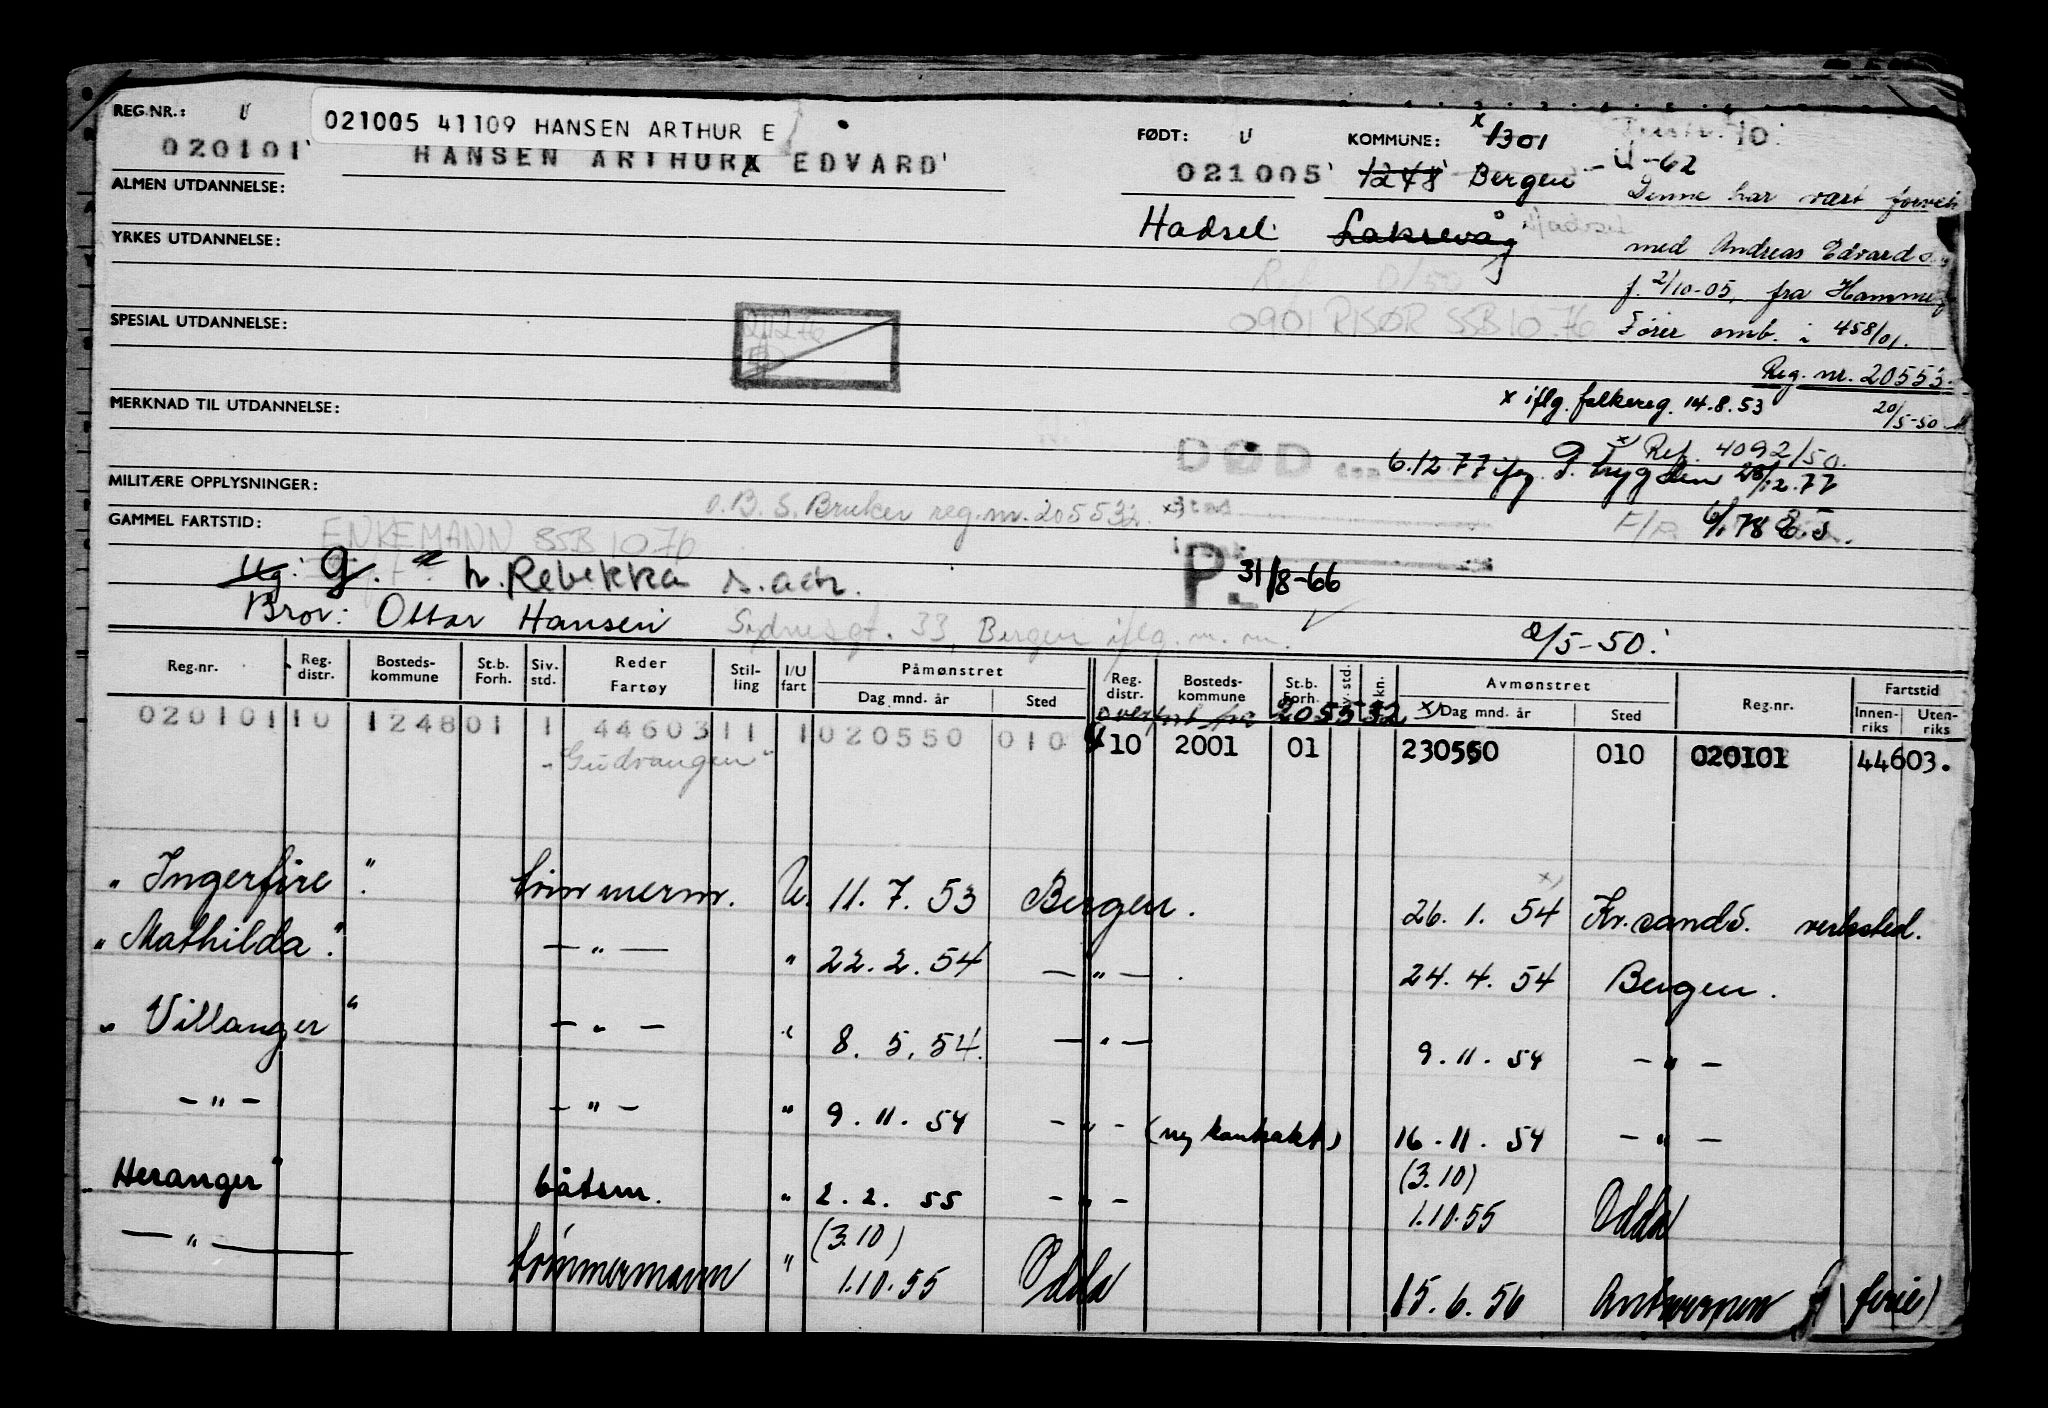 REG.NR.: 021005 41109 HANSEN ARTHUR E FØDT: KOMMUNE: x 1301
020101 HANSEN ARTHUR EDVARD 021005 1248 Bergen U-62
ALMEN UTDANNELSE: Denne har vært
Hadsel Laksevåg
YRKES UTDANNELSE: med Andreas Edvard
f. 2/10-05, fra
0901 RISØR SSB 10.76
SPESIAL UTDANNELSE: Fører omb. i 458/01.
Reg. nr. 20553
MERKNAD TIL UTDANNELSE: x iflg. folkereg. 14.8.53 20/5-50
x) Ref. 4092/50.
DØD 6.12.77
MILITÆRE OPPLYSNINGER:
o.B.S. Bruker reg.nr. 205532
GAMMEL FARTSTID:
ENKEMANN SSB 10 76
Ug. g. h. Rebekka s. adr. P 31/8-66
Bror: Ottar Hansen Sydnesgt. 33, Bergen iflg. m. m. 2/5-50
Reg.nr. Reg. distr. Bosteds- kommune St.b. Forh. Siv. std. Reder Fartøy Stil- ling I/U fart Påmønstret Dag mnd. år Sted Reg. distr. Bosteds- kommune St.b. Forh. Avmønstret Dag mnd. år Sted Reg.nr. Fartstid Innen- riks Uten- riks
overført fra 205532
020101 10 1248 01 1 44603 11 1 020550 010 10 2001 01 230550 010 020101 44603.
"Gudvangen"
"Ingerfire" tømmerm. U. 11.7.53 Bergen. 26.1.54 Kr.sand S. verksted.
"Mathilda" — " — " 22.2.54 — " — 24.4.54 Bergen.
"Villanger" — " — " 8.5.54. — " — 9.11.54 — " —
— " — — " — " 9.11.54 — " — (ny kontrakt) 16.11.54 — " —
"Heranger" båtsm. " 2.2.55 — " — (3.10) 1.10.55 Odda
— " — tømmermann " (3.10) 1.10.55 Odda 15.6.56 Antwerpen (ferie)